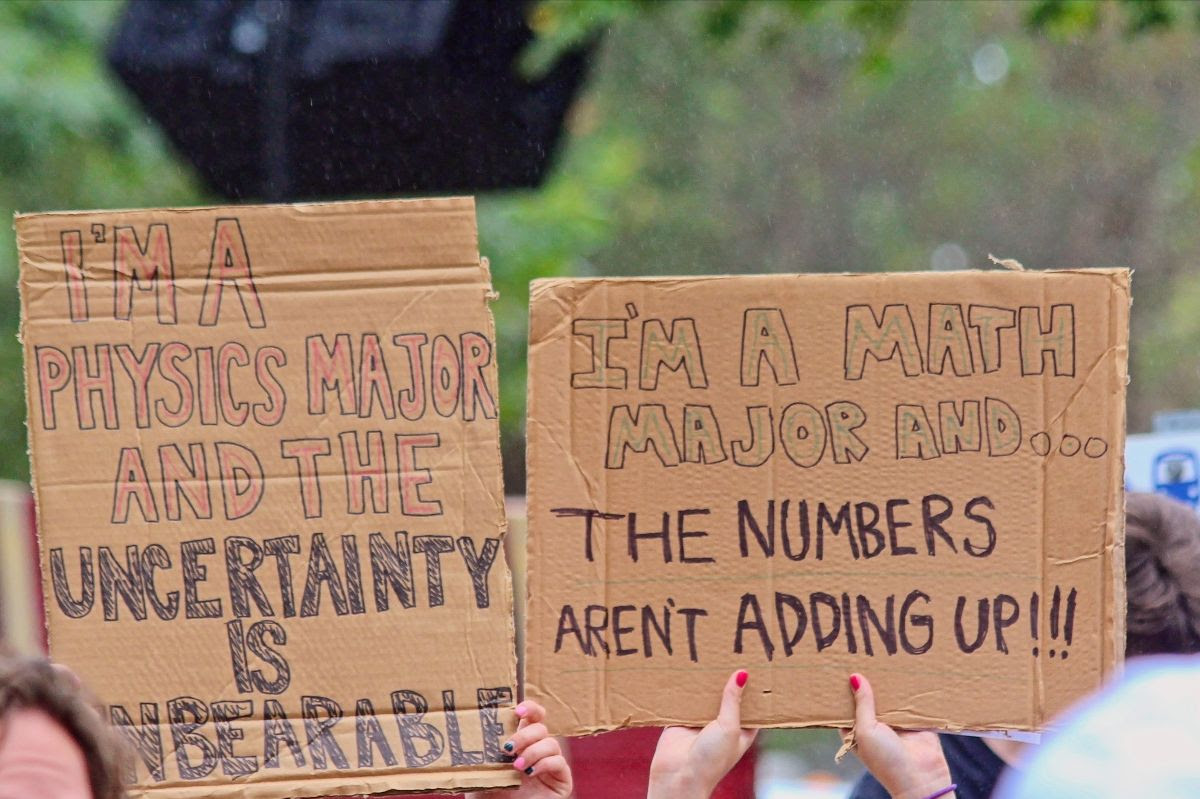 I'M A
PHYSICS MAJOR
AND THE
UNCERTAINTY
IS
UNBEARABLE
I'M A MATH
MAJOR AND...
THE NUMBERS
AREN'T ADDING UP!!!